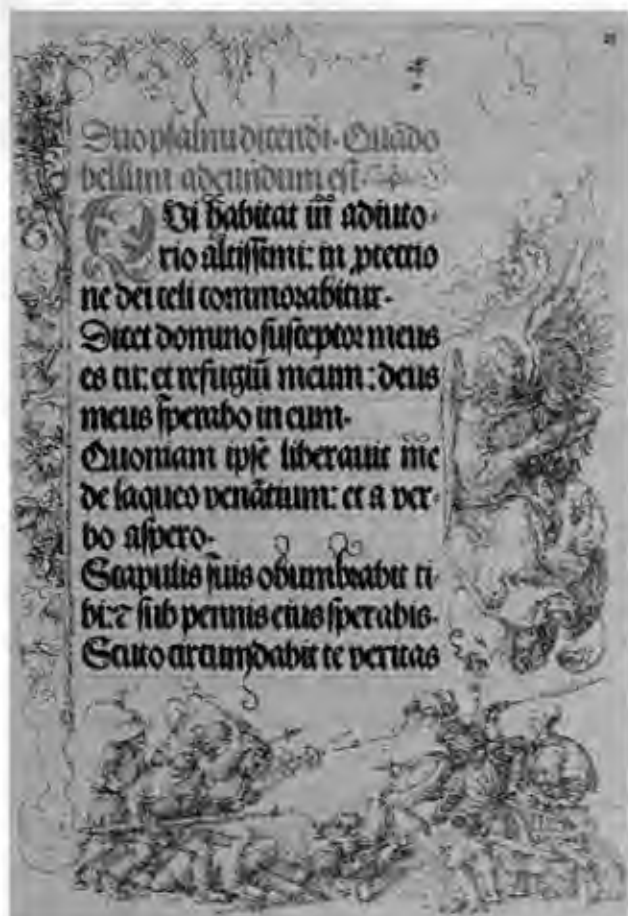 Duo psalmi dicendi. Quãdo
bellum adeundum est.
Qvi habitat in adiuto-
rio altissimi: in ꝓtectio
ne dei celi commorabitur.
Dicet domino susceptor meus
es tu: et refugiũ meum: deus
meus sperabo in eum.
Quoniam ipse liberauit me
de laqueo venãtium: et a ver-
bo aspero.
Scapulis suis obumbrabit ti-
bi: ⁊ sub pennis eius sperabis.
Scuto circumdabit te veritas